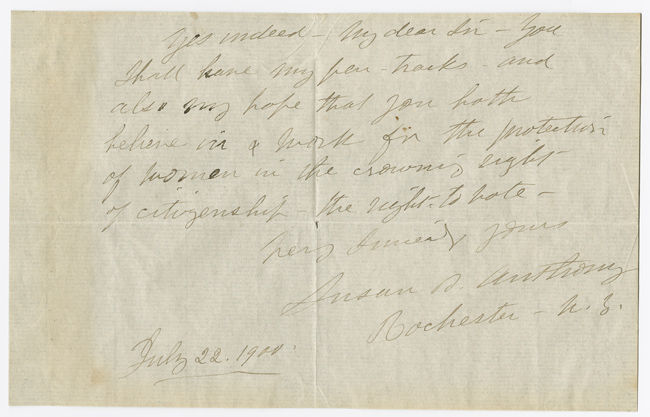 Yes indeed - My dear Sir - You
Shall have my pen-tracks - and
also my hope that you both
believe in & work for the protection
of women in the crowning right
of citizenship - the right to vote -
Very Sincerely yours
Susan B. Anthony
Rochester - N. Y.
July 22. 1900.